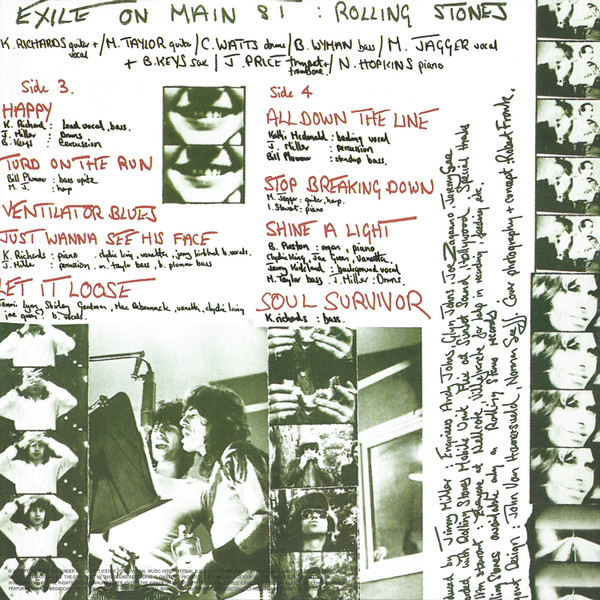 EXILE ON MAIN ST : ROLLING STONES
K. RICHARDS guitar + vocal / M. TAYLOR guitar / C. WATTS drums / B. WYMAN bass / M. JAGGER vocal
+ B. KEYS sax / J. PRICE trumpet + trombone / N. HOPKINS piano
Side 3.
HAPPY
K. Richard : lead vocal, bass.
J. Miller : Drums
B. Keys : Percussion
TURD ON THE RUN
Bill Plummer : bass
M. J. : harp
VENTILATOR BLUES
JUST WANNA SEE HIS FACE
K. Richards : piano . clydie king, vanetta, jerry kirkland b. vocals.
J. Miller : percussion. m. taylor bass, b. plummer bass
LET IT LOOSE
Tammi Lynn, Shirley Goodman, Mac Rebennack, vanetta, clydie king
joe green b. vocals.
Side 4
ALL DOWN THE LINE
Kathi Mcdonald : backing vocal
J. Miller : percussion
Bill Plummer : standup bass.
STOP BREAKING DOWN
M. Jagger : guitar, harp.
I. Stewart : piano
SHINE A LIGHT
B. Preston : organ, piano
Clydie King, Joe Green, Vanetta
Jerry Kirkland : background vocal
M. Taylor bass J. Miller : Drums.
SOUL SURVIVOR
K. richards : bass.
by Jimmy Miller : Engineers Andy Johns Glyn Johns Joe Zagarino Jeremy Gee
with Rolling Stones Mobile Unit Sunset Sound, Hollywood. Special thanks
stewart : Everyone at Nellcote Villefranche for help in recording, feeding etc.
Stones available only on Rolling Stones records
Design : John Van Hamersveld, Norman Seeff : Cover photography + concept Robert Frank.